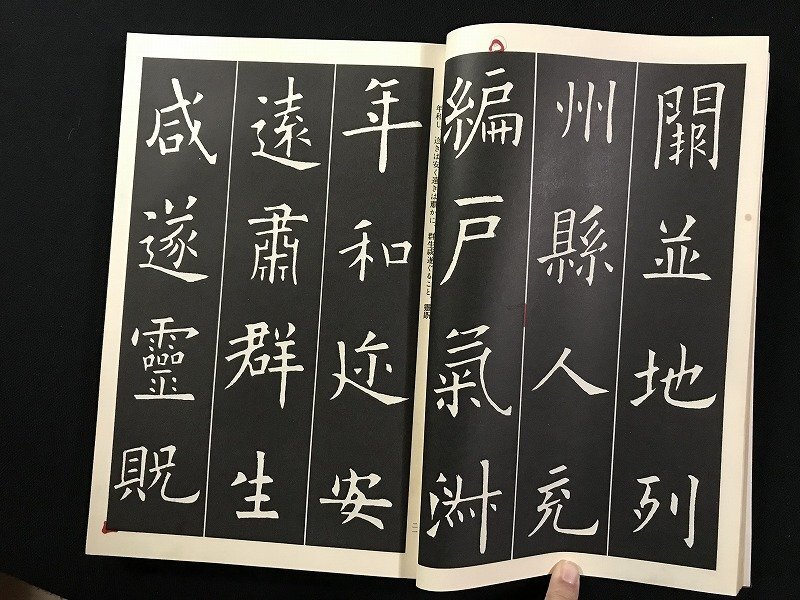 闕並地列
州縣人充
編戸氣淑
年和し、迩きは安く遠きは肅かに、群生咸遂ぐること、靈貺
年和迩安
遠肅群生
咸遂靈貺
二一